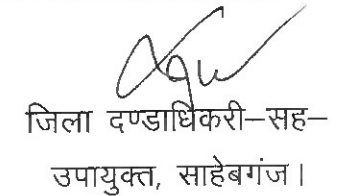 जिला दण्डाधिकरी–सह–
उपायुक्त, साहेबगंज।